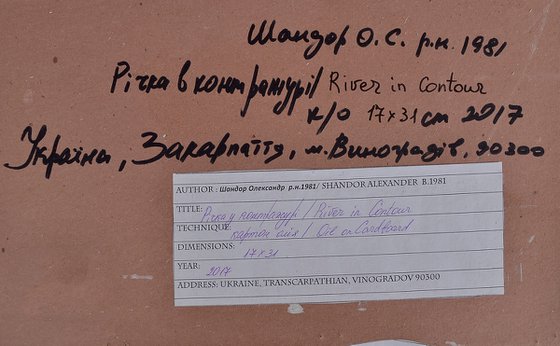 Шандор О.С. р.н. 1981
Річка в контражурі/ River in Contour
к/о 17х31 см 2017
Україна, Закарпаття, м. Виноградів, 90300
AUTHOR: Шандор Олександр р.н.1981/ SHANDOR ALEXANDER B.1981
TITLE: Річка у контражурі / River in Contour
TECHNIQUE: картон олія / Oil on Cardboard
DIMENSIONS: 17х31
YEAR: 2017
ADDRESS: UKRAINE, TRANSCARPATHIAN, VINOGRADOV 90300